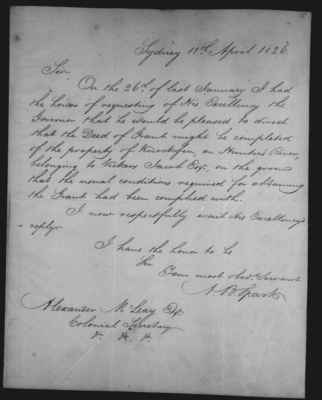 Sydney 11th April 1826
Sir
On the 26th of last January I had
the honor of requesting of His Excellency the
Governor that he would be pleased to direct
that the Deed of Grant might be completed
of the property of on Hunters River,
belonging to Vickers Jacob Esq. on the ground
that the usual conditions required for obtaining
the Grant had been complied with.
I now respectfully await His Excellency's
reply.
I have the honor to be
Sir
Your most obedt Servant
A B Spark
Alexander McLeay Esq
Colonial Secretary
&. &. &.